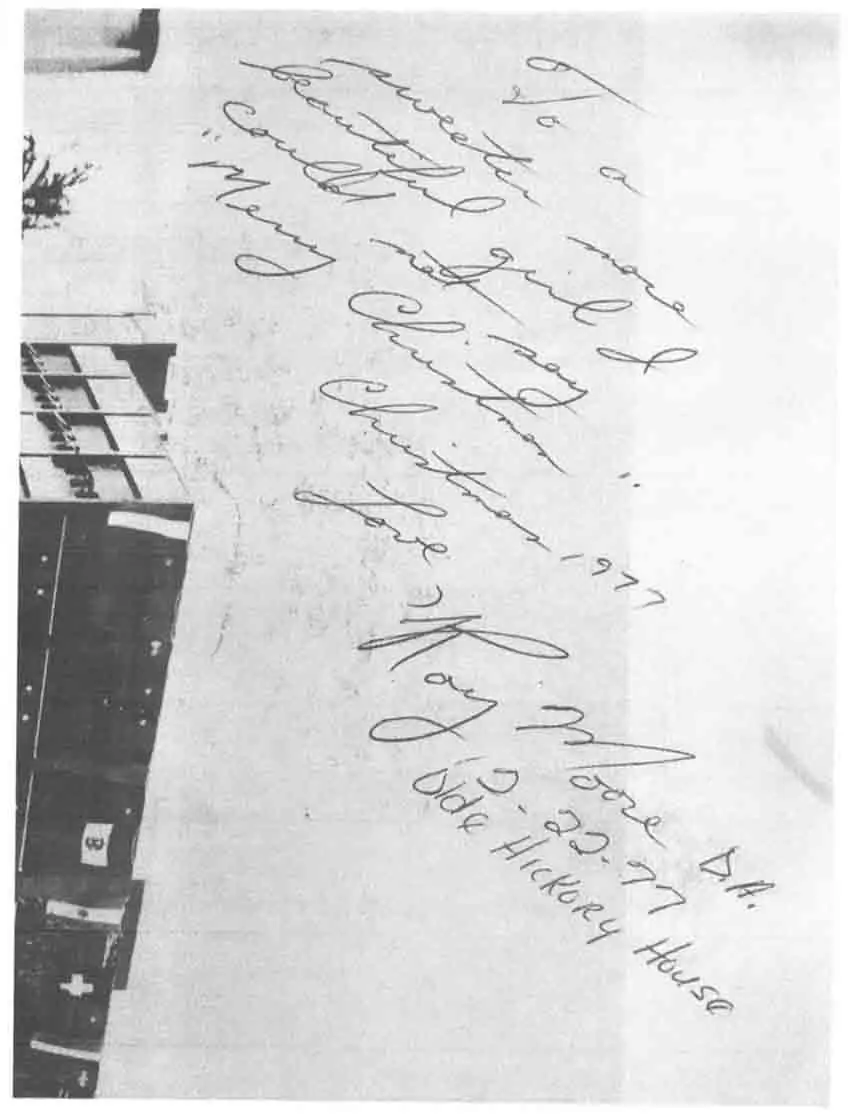 To a
sweeter more
beautiful girl I
could not say
"Merry Christmas"
Christmas 1977
Love, Roy Moore D.A.
12-22-77
Olde Hickory House
B